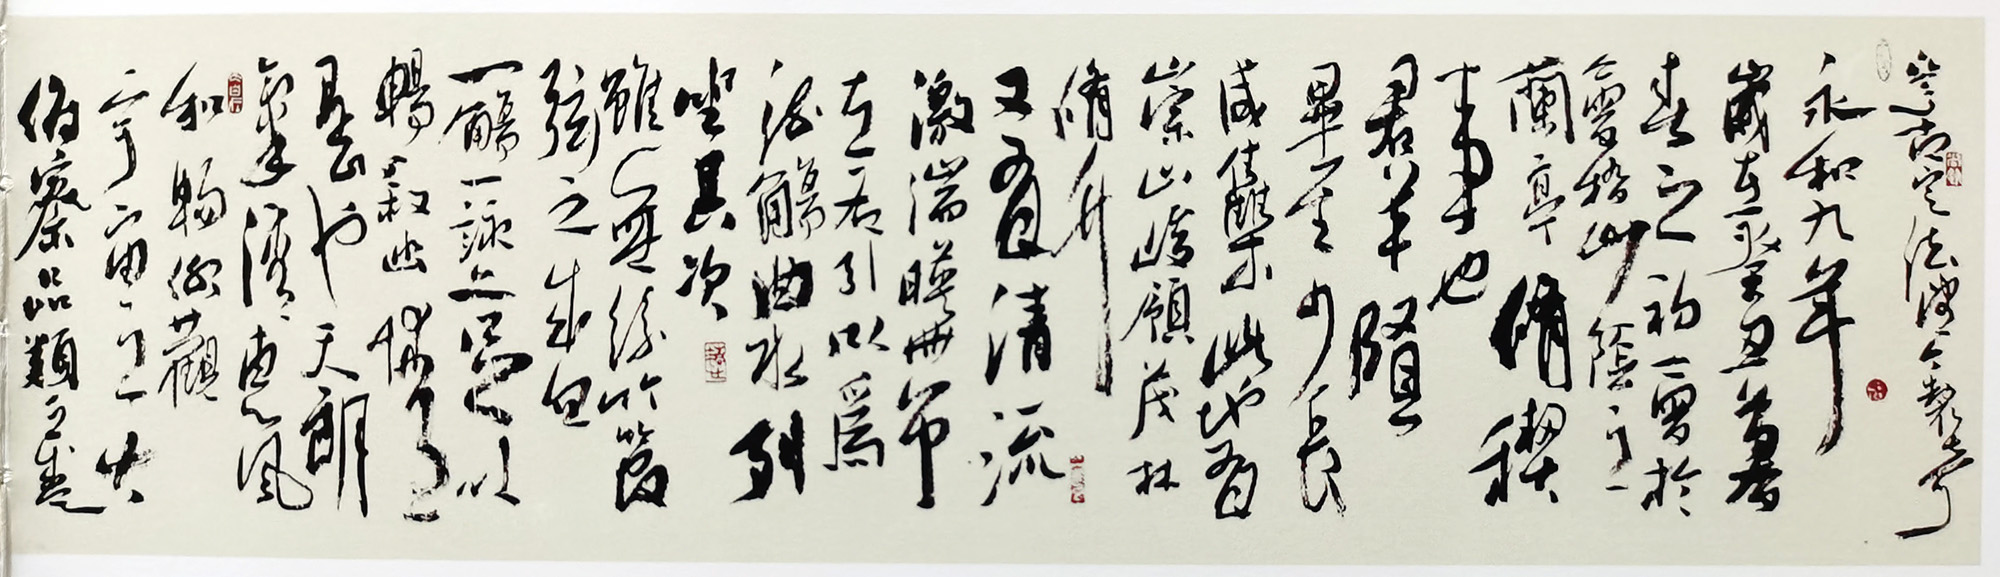 永和九年
歲在癸丑暮
春之初會於
會稽山陰之
蘭亭脩禊
事也
羣賢
畢至少長
咸集此地有
崇山峻領茂林
脩竹
又有清流
激湍暎帶
左右引以爲
流觴曲水列
坐其次
雖無絲竹管
弦之盛
一觴一詠亦足以
暢敘幽情
是日也天朗
氣清惠風
和暢仰觀
宇宙之大
俯察品類之盛